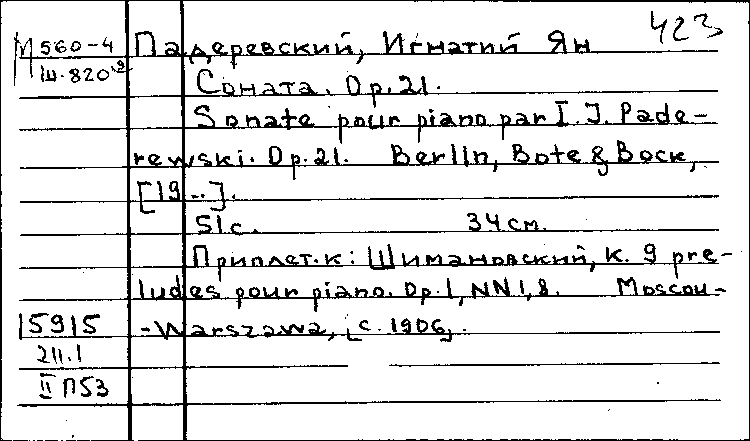 423
М 560-4 Падеревский, Игнатий Ян
Ш.820
Соната. Op.21.
Sonate pour piano par I. J. Pade-
rewski. Op.21. Berlin, Bote & Bock,
[19..].
51с. 34см.
Приплет.к: Шимановский, К. 9 pre-
ludes pour piano. Op.1, NN1,8. Moscou-
15915 -Warszawa, [с. 1906].
211.1
II П53